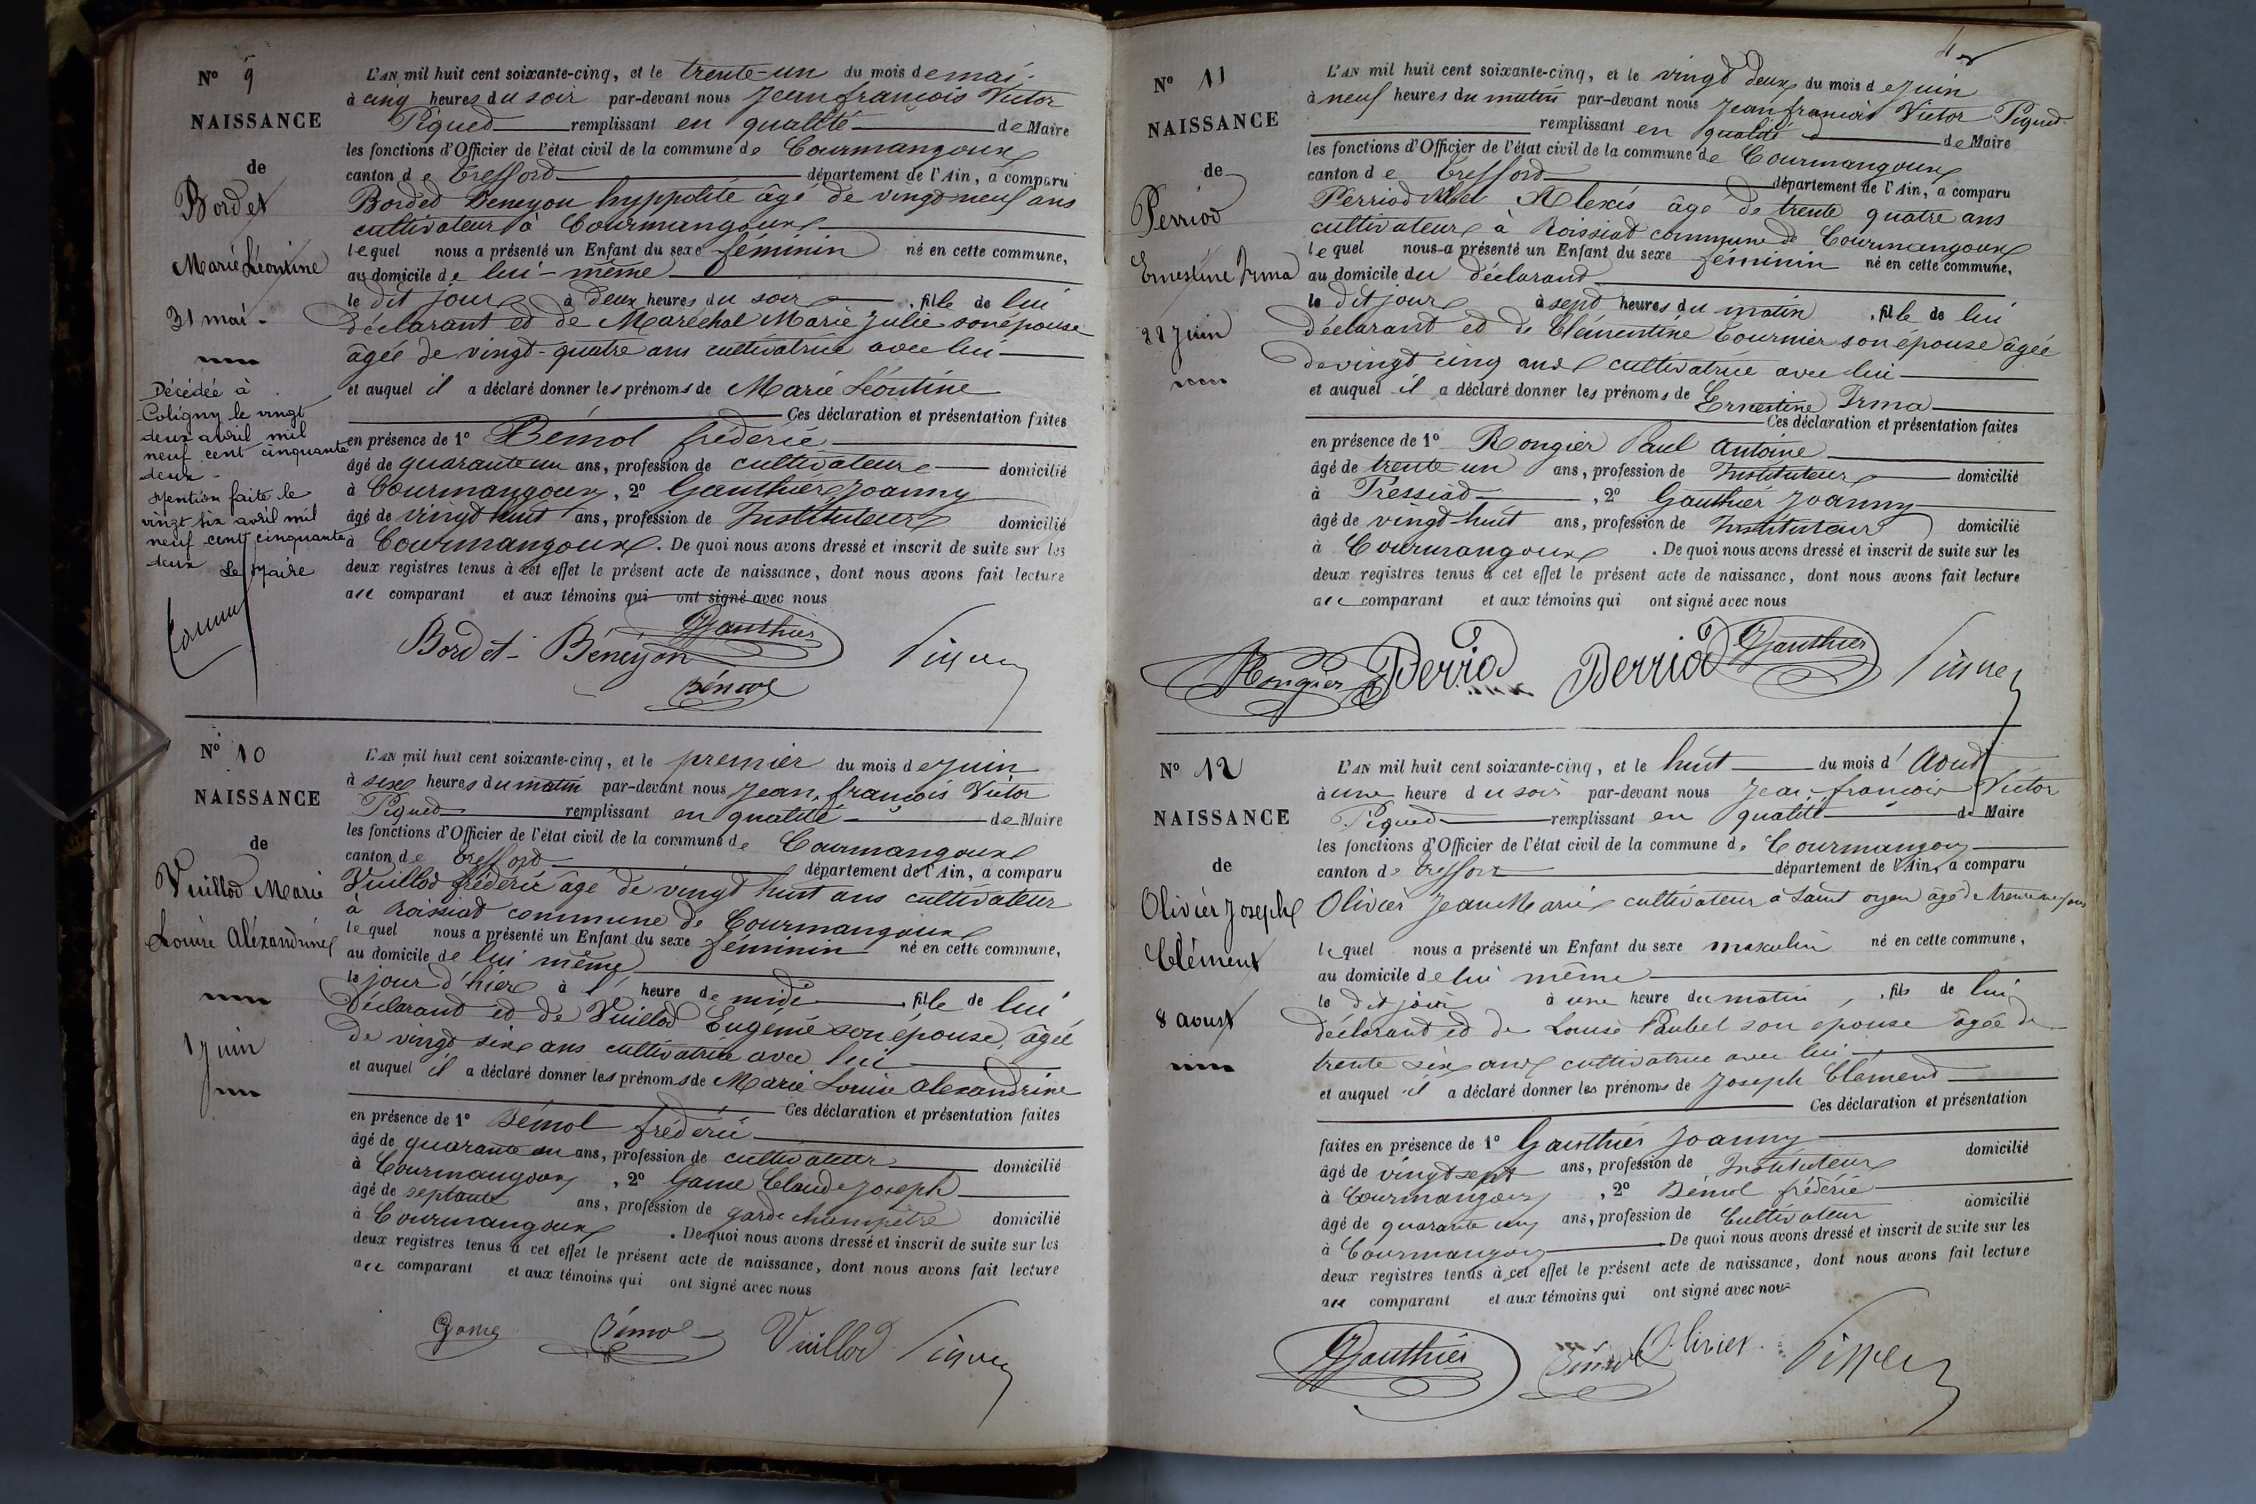 N° 9
NAISSANCE
de
Bordet
Marie Léontine
31 mai.
Décédée à
Coligny le vingt
deux avril mil
neuf cent cinquante
deux.
Mention faite le
vingt six avril mil
neuf cent cinquante
deux
Le Maire
L'AN mil huit cent soixante-cinq, et le trente-un du mois de mai.
à cinq heures du soir par-devant nous Jean françois Victor
Piqued remplissant en qualité de Maire
les fonctions d'Officier de l'état civil de la commune de Courmangoux
canton de Trefford département de l'Ain, a comparu
Borded Beneyon hyppolite âgé de vingt-neuf ans
cultivateur à Courmangoux
lequel nous a présenté un Enfant du sexe féminin né en cette commune,
au domicile de lui-même
le dit jour à deux heures du soir, fille de lui
déclarant et de Maréchal Marie Julie son épouse
âgée de vingt-quatre ans cultivatrice avec lui
et auquel il a déclaré donner les prénoms de Marie Léontine
Ces déclaration et présentation faites
en présence de 1° Bémol fréderic
âgé de quarante un ans, profession de cultivateur domicilié
à Courmangoux, 2° Gauthier Joanny
âgé de vingt huit ans, profession de Instituteur domicilié
à Courmangoux. De quoi nous avons dressé et inscrit de suite sur les
deux registres tenus à cet effet le présent acte de naissance, dont nous avons fait lecture
au comparant et aux témoins qui ont signé avec nous
Gauthier
Bordet-Béneyon
Piquet
Bémol
N° 10
NAISSANCE
de
Vuillod Marie
Louise Aléxandrine
1 Juin
L'AN mil huit cent soixante-cinq, et le premier du mois de juin
à six heures du matin par-devant nous Jean, françois Victor
Piqued remplissant en qualité de Maire
les fonctions d'Officier de l'état civil de la commune de Courmangoux
canton de Trefford département de l'Ain, a comparu
Vuillod fréderic âgé de vingt huit ans cultivateur
à Roissiat commune de Courmangoux
lequel nous a présenté un Enfant du sexe féminin né en cette commune,
au domicile de lui même
le jour d'hier à l' heure de midi, fille de lui
Déclarant et de Vuillod Eugénie son épouse, âgée
de vingt six ans cultivatrice avec lui
et auquel il a déclaré donner les prénoms de Marie Louise Alexandrine
Ces déclaration et présentation faites
en présence de 1° Bémol fréderic
âgé de quarante un ans, profession de cultivateur domicilié
à Courmangoux, 2° Game Claude Joseph
âgé de septante ans, profession de garde champêtre domicilié
à Courmangoux. De quoi nous avons dressé et inscrit de suite sur les
deux registres tenus à cet effet le présent acte de naissance, dont nous avons fait lecture
au comparant et aux témoins qui ont signé avec nous
Game Bémol Vuillod Piquet
N° 11
NAISSANCE
de
Perriod
Ernestine Irma
22 Juin
L'AN mil huit cent soixante-cinq, et le vingt deux du mois de Juin
à neuf heures du matin par-devant nous Jean françois Victor Piqued
remplissant en qualité de Maire
les fonctions d'Officier de l'état civil de la commune de Courmangoux
canton de Trefford département de l'Ain, a comparu
Perriod Alexis âgé de trente quatre ans
cultivateur à Roissiat commune de Courmangoux
lequel nous a présenté un Enfant du sexe féminin né en cette commune,
au domicile du déclarant
le dit jour à sept heures du matin, fille de lui
déclarant et de Clémentine Tournier son épouse âgée
de vingt cinq ans cultivatrice avec lui
et auquel il a déclaré donner les prénoms de Ernestine Irma
Ces déclaration et présentation faites
en présence de 1° Rongier Paul Antoine
âgé de trente un ans, profession de Instituteur domicilié
à Pressiad, 2° Gauthier Joanny
âgé de vingt-huit ans, profession de Instituteur domicilié
à Courmangoux. De quoi nous avons dressé et inscrit de suite sur les
deux registres tenus à cet effet le présent acte de naissance, dont nous avons fait lecture
au comparant et aux témoins qui ont signé avec nous
Rongier Perriod Perriod Gauthier Piquet
N° 12
NAISSANCE
de
Olivier Joseph
Clément
8 aoust
L'AN mil huit cent soixante-cinq, et le huit du mois d'Aoud
à une heure du soir par-devant nous Jean-françois Victor
Piqued remplissant en qualité de Maire
les fonctions d'Officier de l'état civil de la commune de Courmangoux
canton de Treffort département de l'Ain, a comparu
Olivier Jean Marie cultivateur à Saint oyen âgé de trente neuf ans
lequel nous a présenté un Enfant du sexe masculin né en cette commune,
au domicile de lui même
le dit jour à une heure du matin, fils de lui
déclarant et de Louise Paubel son épouse âgée de
trente six ans cultivatrice avec lui
et auquel il a déclaré donner les prénoms de Joseph Clémend
Ces déclaration et présentation
faites en présence de 1° Gauthier Joanny domicilié
âgé de vingt sept ans, profession de Instituteur
à Courmangoux, 2° Bémol fréderic domicilié
âgé de quarante un ans, profession de Cultivateur
à Courmangoux De quoi nous avons dressé et inscrit de suite sur les
deux registres tenus à cet effet le présent acte de naissance, dont nous avons fait lecture
au comparant et aux témoins qui ont signé avec nous
Gauthier Bémol Olivier Piquet